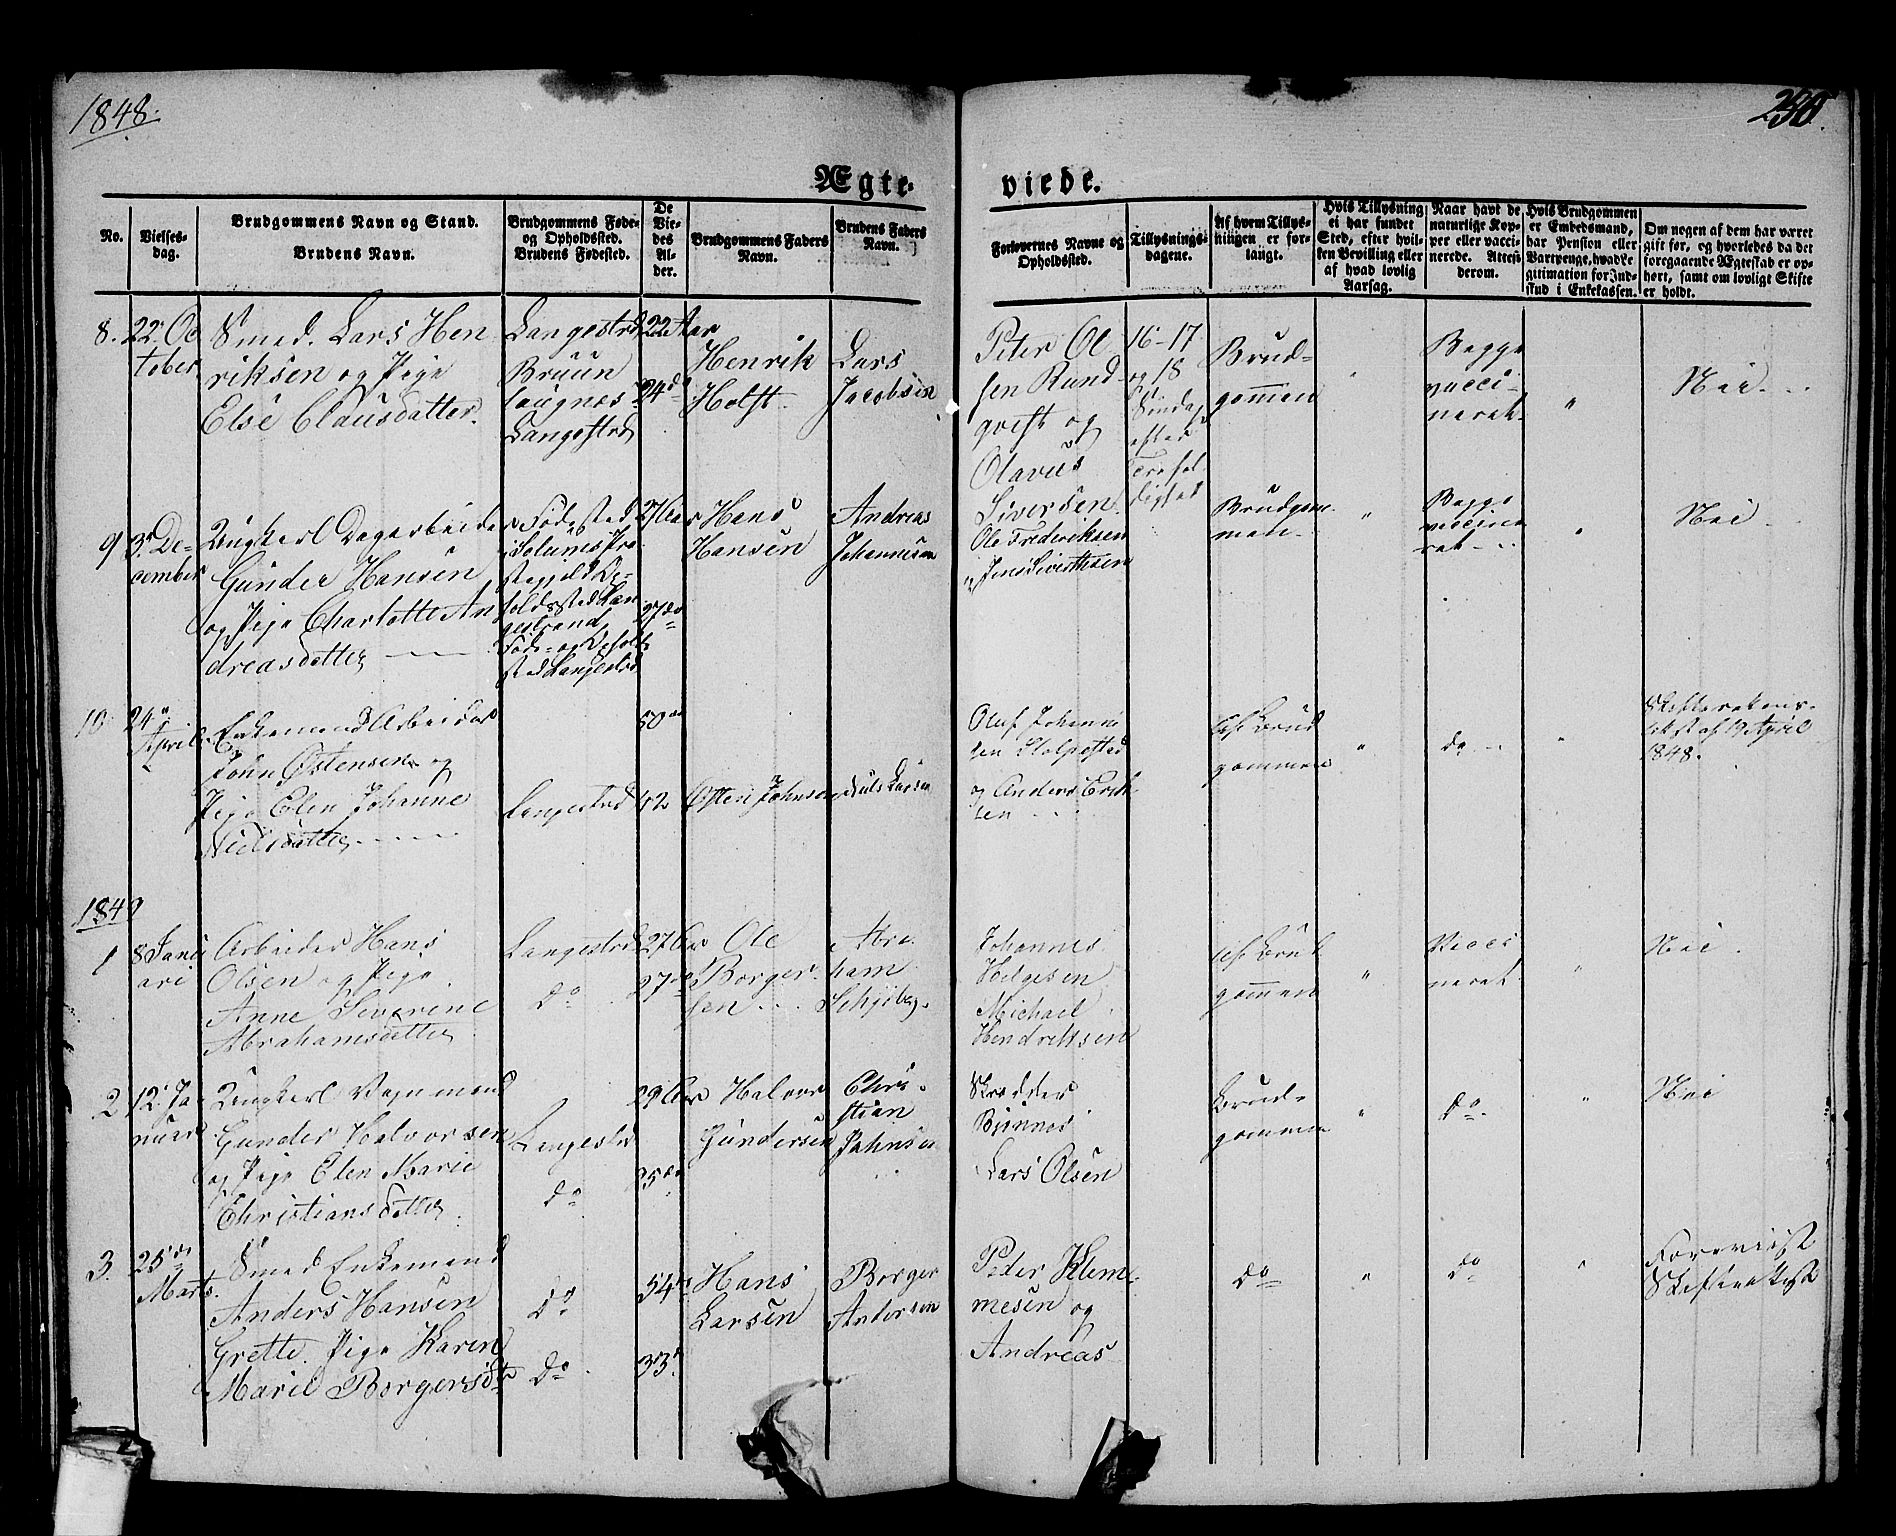 1848.
230.
Ægte-
viede.
No.
Vielses-
dag.
Brudgommens Navn og Stand.
Brudens Navn.
Brudgommens Føde-
og Opholdssted.
Brudens Fødested.
De
Vie-
des
Al-
der.
Brudgommens Faders
Navn.
Brudens Faders
Navn.
Forlovernes Navne og
Opholdssted.
Tillysnings-
dagene.
Af hvem Tillys-
ningen er for-
langt.
Hvis Tillysning
ei har fundet
Sted, efter hvil-
ken Bevilling eller
af hvad lovlig
Aarsag.
Naar havt de
naturlige Kop-
per eller vacci-
nerede. Attest
derom.
Hvis Brudgommen
er Embedsmand,
har Pension eller
Vartpenge, hvad Le-
gitimation for Ind-
skud i Enkekassen.
Om nogen af dem har været
gift før, og hvorledes da det
foregaaende Ægteskab er op-
hørt, samt om lovligt Skifte
er holdt.
8. 22. Oc
tober
Smed. Lars Hen
riksen og Pige
Else Clausdatter.
Langestrd
Bruun
laugnes
Langestrd
22 Aar
24 d
Henrik
Holst.
Lars
Jacobsen
Peter Ol
sen Rund-
qvist og
Olavus
Siversen
16-17
og 18
Søndag
efter
Trefol
dighed
Brud-
gommen
Begge
vacci-
neret.
"
Nei.
9 3 De-
cember
Ungkarl Dagarbeider
Gunder Hansen
og Pige Charlotte An
dreasdatter
Fødested
Solums Præ
stegjeld Op-
holdssted Lan
gestrand
Føde- og Ophold
sted Langestrd
27 do
Hans
Hansen
Andreas
Johannesen
Ole Frederiksen
Jens Siverthsen
Brudgom
men.
"
Begge
vaccine
ret
"
Nei
10. 24
April
Enkemand Arbeider
John Østensen og
Pige Elen Johanne
Nielsdatter
Langestrd
50
42
Østen Johnsen
Niels Larsen
Oluf Johanne
sen Stolpestad
og Anders Erik
sen
af Brud
gommen
"
do
"
af 19 April
1848.
1849
1 8 Janu
ari
Arbeider Hans
Olsen og Pige
Anne Severine
Abrahamsdatter
Langestrd
do
27 Aar
27
Ole
Borger
sen
Abra
ham
Johannes
Helgesen
Michael
Hendriksen
af Brud
gommen
"
Vacci
neret
"
Nei.
2 12. Ja
nuar
Ungkarl Vognmand
Gunder Halvorsen
og Pige Elen Marie
Christiansdatter
Langestrd
do
29 Aar
25
Halvor
Gundersen
Chri-
stian
Johnsen
Skrædder
Lars Olsen
Brud-
gommen
"
do.
"
Nei
3. 25
Marts.
Smed Enkemand
Anders Hansen
Grette. Pige Karen
Marie Borgersdtr
do
do
54
33
Hans
Larsen
Borger
Andersen
Peder Klem-
mesen og
Andreas
do
"
do
"
Foreviist
Skifteattest